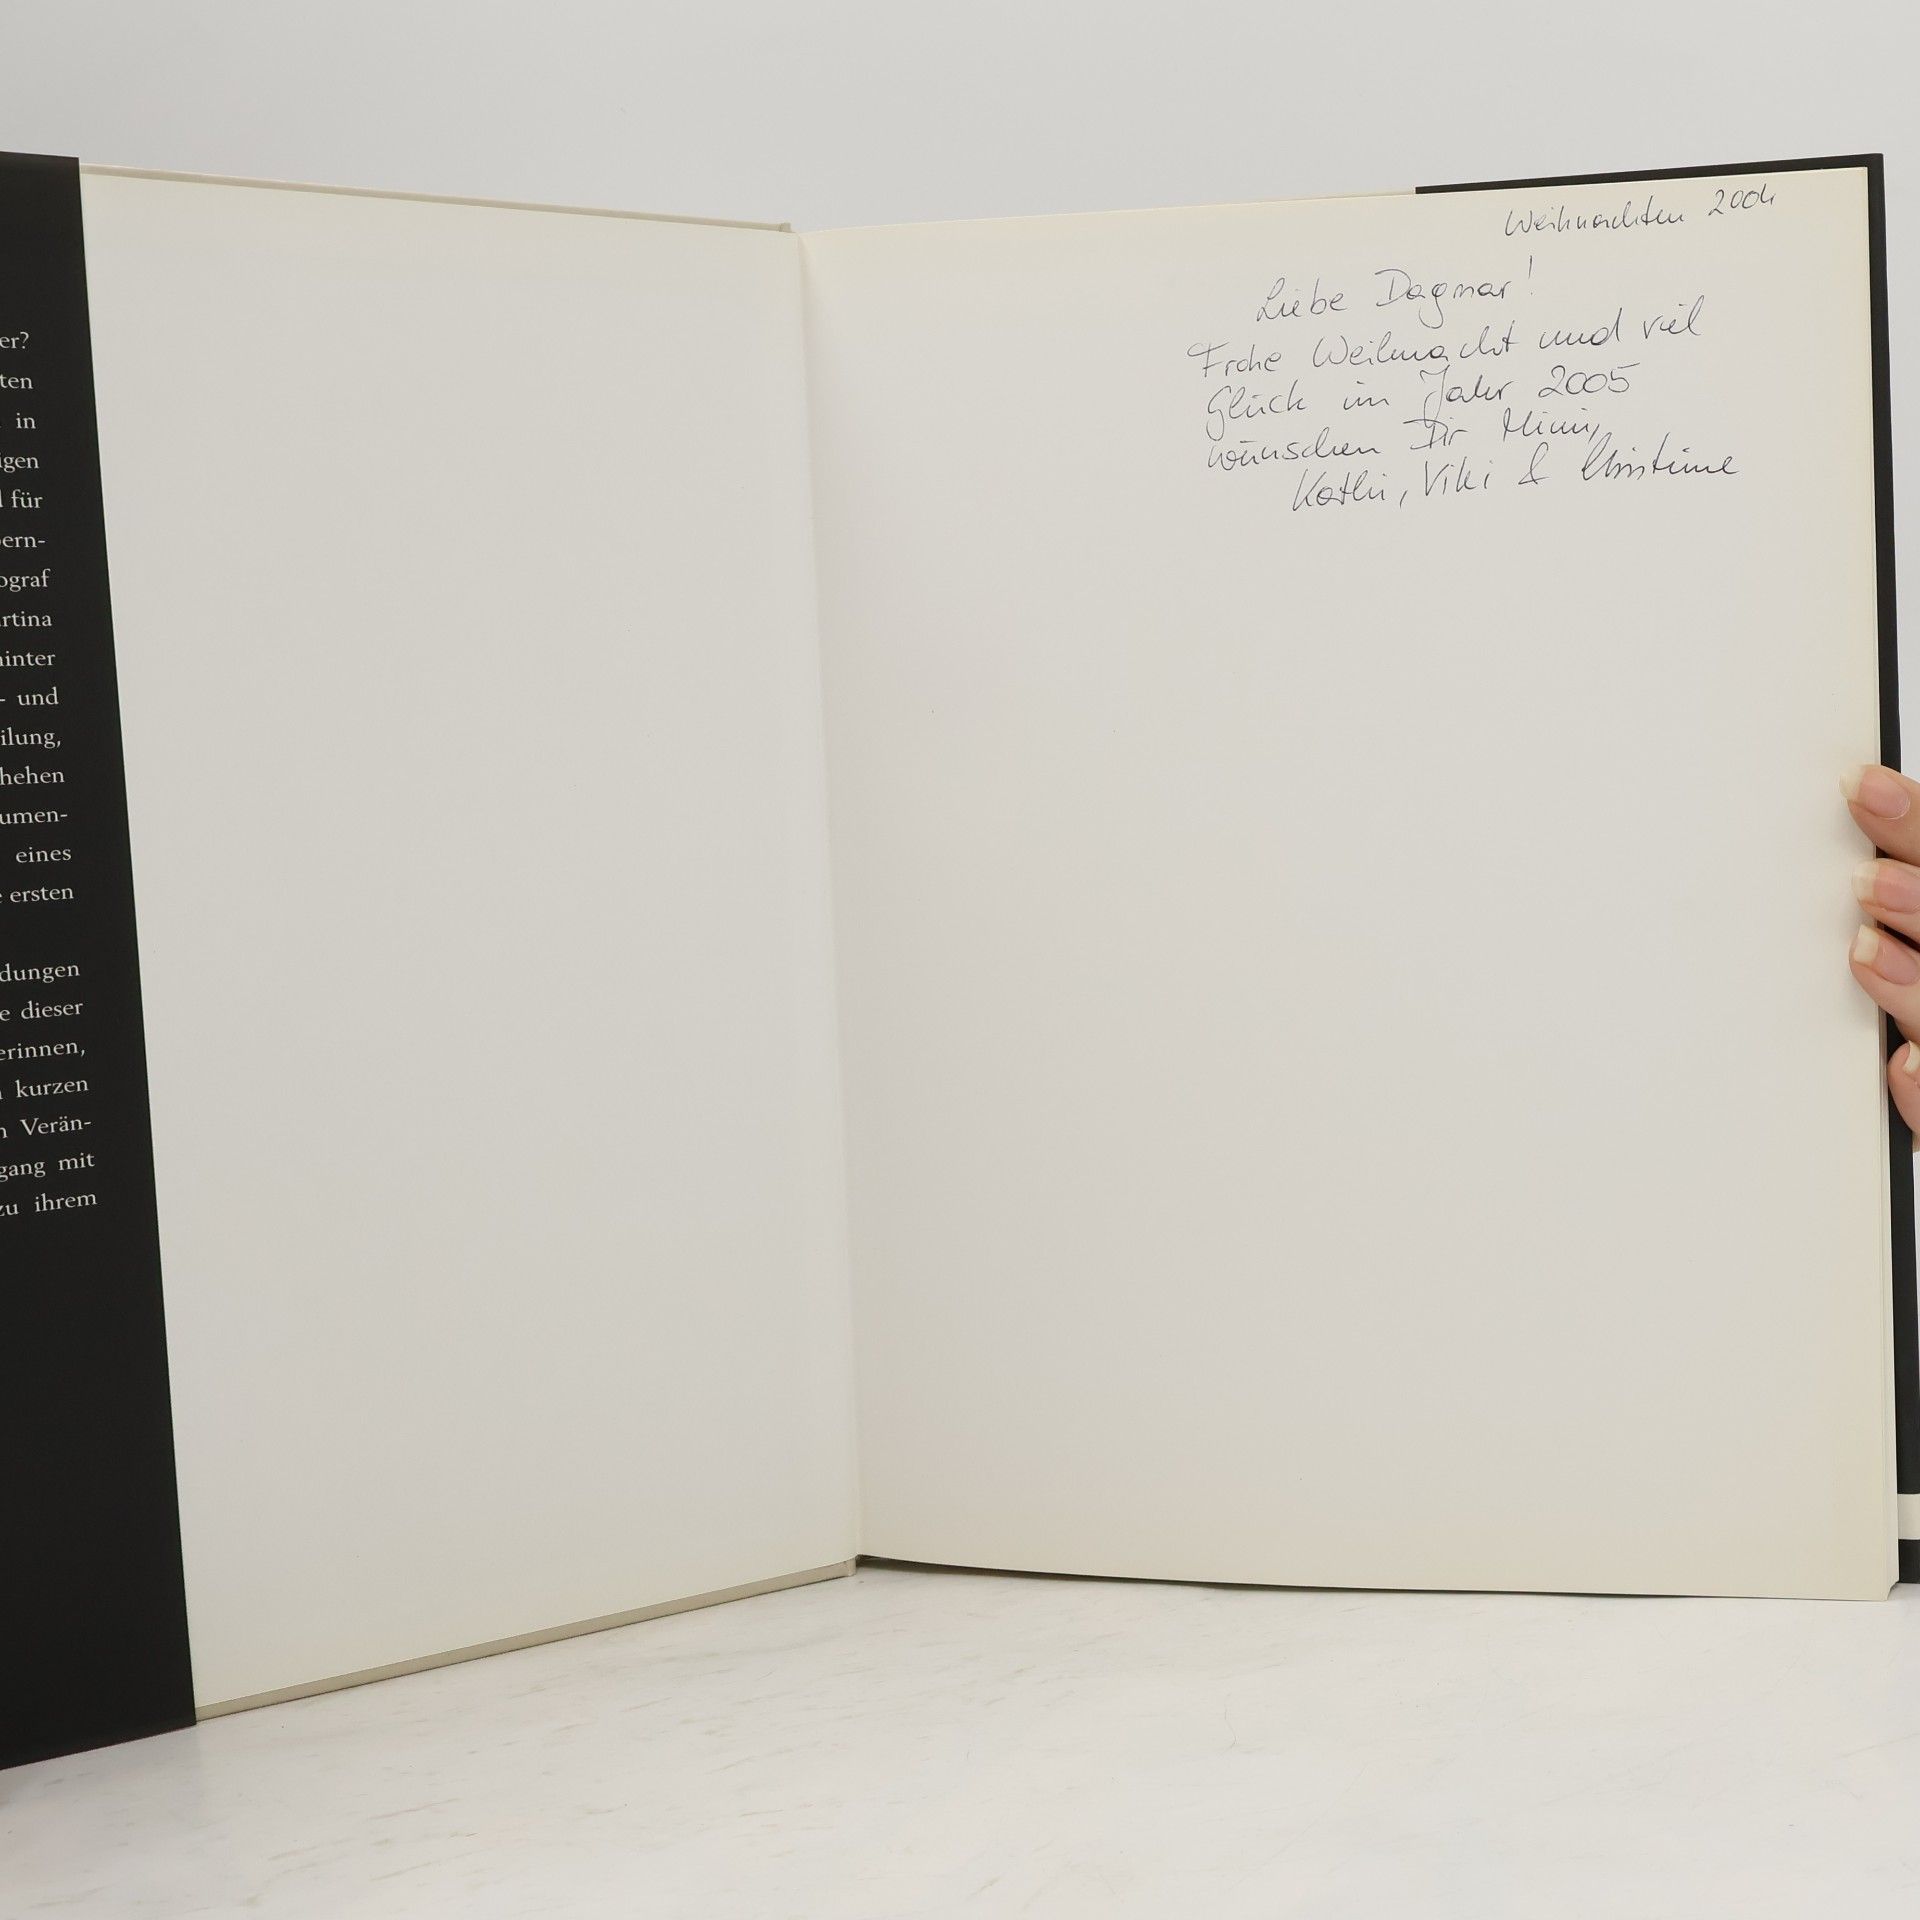 er?
ten
in
igen
für
ern-
ograf
rtina
inter
- und
ilung,
hehen
umen-
eines
ersten
dungen
e dieser
erinnen,
kurzen
n Verän-
gang mit
zu ihrem
Weihnachten 2004
Liebe Dagmar!
Frohe Weihnacht und viel
Glück im Jahr 2005
wünschen Dir Mimi,
Kathi, Viki & Christine